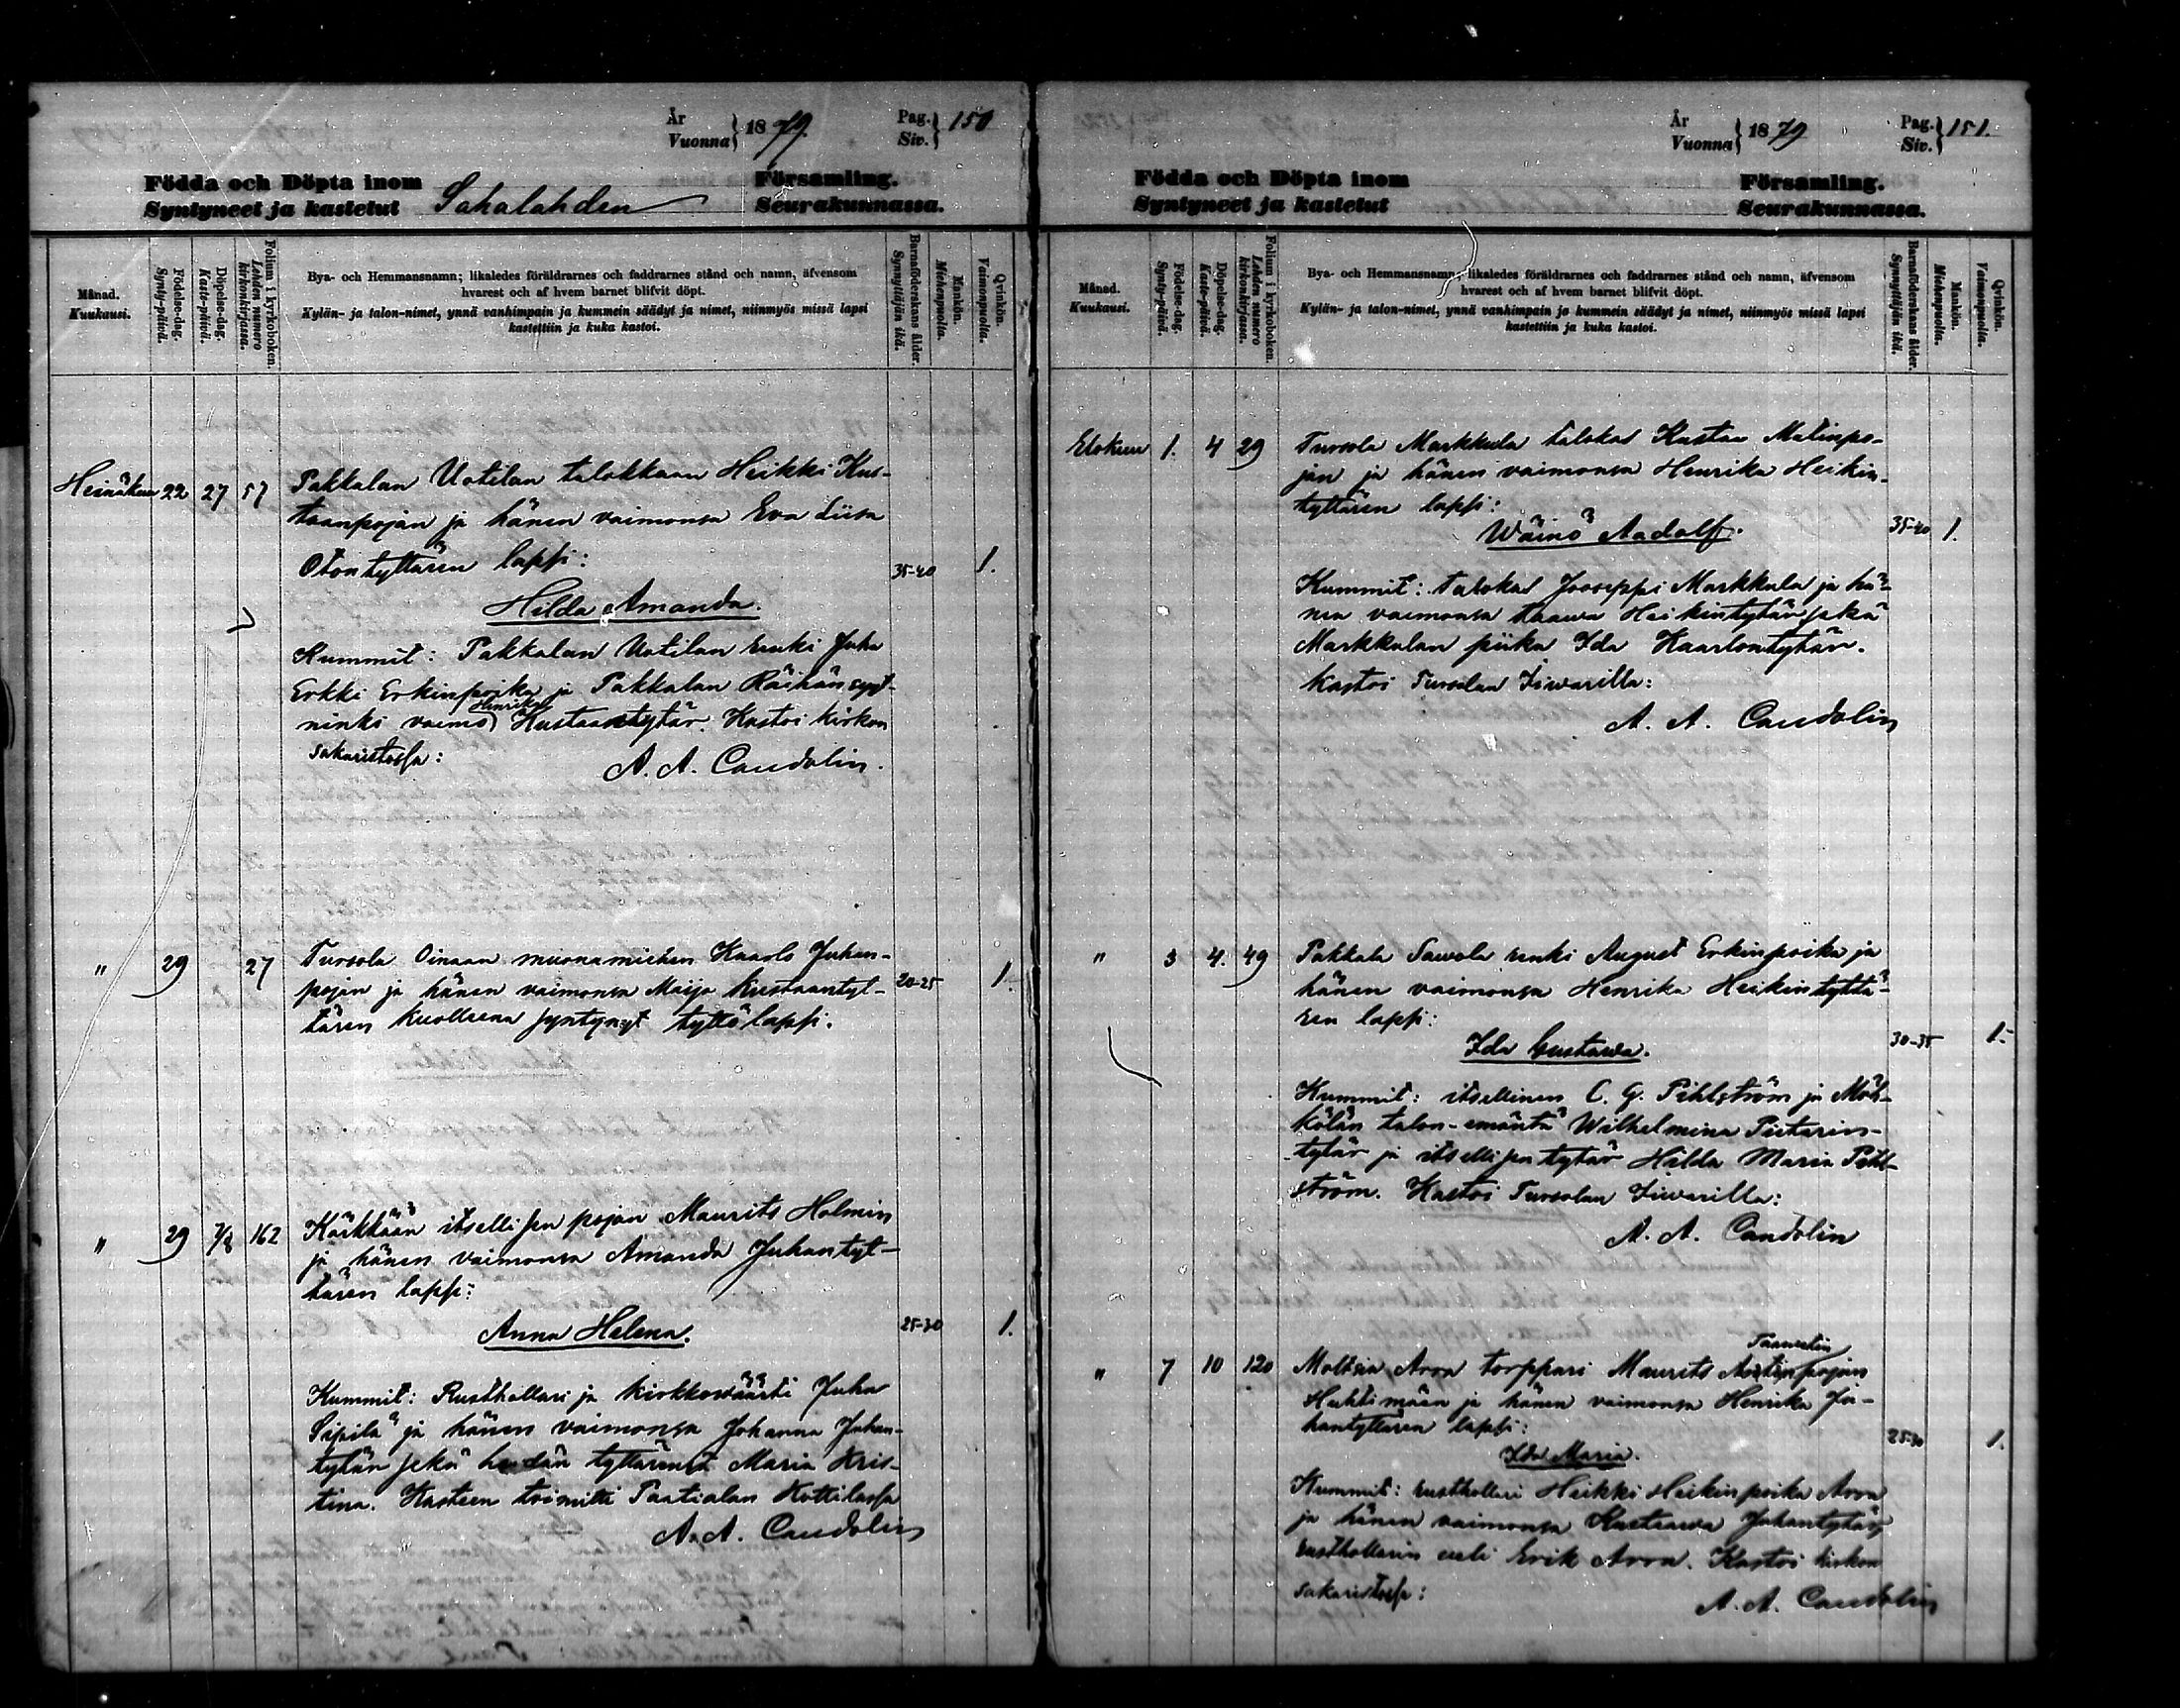 År
Vuonna } 1879.
Pag.
Siv. } 150
Födda och Döpta inom Församling.
Syntyneet ja kastetut Sahalahden Seurakunnassa.
Månad.
Kuukausi.
Födelse-dag.
Synty-päivä.
Döpelse-dag.
Kaste-päivä.
Folium i kyrkoboken.
Lehden numero
kirkonkirjassa.
Bya- och Hemmansnamn; likaledes föräldrarnes och faddrarnes stånd och namn, äfvensom
hvarest och af hvem barnet blifvit döpt.
Kylän- ja talon-nimet, ynnä vanhimpain ja kummein säädyt ja nimet, niinmyös missä lapsi
kastettiin ja kuka kastoi.
Barnaföderskans ålder.
Synnyttäjän ikä.
Mankön.
Miehenpuolta.
Qvinkön.
Vaimonpuolta.
Heinäkuu 22 27 57 Pakkalan Uotilan talokkaan Heikki Kus-
taanpojan ja hänen vaimonsa Eva Liisa
Otontyttären lapsi: 35-40 1.
Hilda Amanda.
Kummit: Pakkalan Uotilan renki Juha
Erkki Erkinpoika ja Pakkalan Räihän
ninki vaimo Henrika Kustaantytär. Kastoi kirkon
sakaristossa: A. A. Candolin.
" 29 27 Tursola Oinaan muonamiehen Kaarlo Juhan-
pojan ja hänen vaimonsa Maija Kustaantyt- 20-25 1.
tären kuolleena syntynyt tyttölapsi.
" 29 7/8 162 Kärkkään itsellisen pojan Maurits Holmin
ja hänen vaimonsa Amanda Juhantyt-
tären lapsi:
Anna Helena. 25-30 1.
Kummit: Rusthollari ja kirkkoväärti Juha
Sipilä ja hänen vaimonsa Johanna Juhan-
tytär sekä heidän tyttärensä Maria Kris-
tina. Kasteen toimitti Paatialan Kottilassa
A. A. Candolin
År
Vuonna } 1879
Pag.
Siv. } 151.
Födda och Döpta inom Församling.
Syntyneet ja kastetut Seurakunnassa.
Månad.
Kuukausi.
Födelse-dag.
Synty-päivä.
Döpelse-dag.
Kaste-päivä.
Folium i kyrkoboken.
Lehden numero
kirkonkirjassa.
Bya- och Hemmansnamn; likaledes föräldrarnes och faddrarnes stånd och namn, äfvensom
hvarest och af hvem barnet blifvit döpt.
Kylän- ja talon-nimet, ynnä vanhimpain ja kummein säädyt ja nimet, niinmyös missä lapsi
kastettiin ja kuka kastoi.
Barnaföderskans ålder.
Synnyttäjän ikä.
Mankön.
Miehenpuolta.
Qvinkön.
Vaimonpuolta.
Elokuu 1. 4 29 Tursola Markkula talokas Kustaa Matinpo-
jan ja hänen vaimonsa Henrika Heikin-
tyttären lapsi:
Wäinö Aadolf. 35-40 1.
Kummit: talokas Jooseppi Markkula ja hä-
nen vaimonsa Heikintytär sekä
Markkulan piika Ida Kaarlontytär.
Kastoi Tursolan Iiwarilla:
A. A. Candolin
" 3 4. 49 Pakkala Sawola renki August Erkinpoika ja
hänen vaimonsa Henrika Heikintyttä-
ren lapsi:
Ida Gustawa. 30-35 1.
Kummit: itsellinen C. G. Pihlström ja Möh-
kölän talon-emäntä Wilhelmina Pietarin-
tytär ja itsellisen tytär Hilda Maria Pihl-
ström. Kastoi Tursolan Iiwarilla:
A. A. Candolin
Taawetin
" 7 10 120 Moltsia Arra torppari Maurits Antinpojan
Huhtimään ja hänen vaimonsa Henrika Ju-
hantyttären lapsi: 25-30 1.
Ida Maria.
Kummit: rusthollari Heikki Heikinpoika Arra
ja hänen vaimonsa Kustaawa Juhantytär,
rusthollarin veli Erik Arra. Kastoi kirkon
sakaristossa: A. A. Candolin